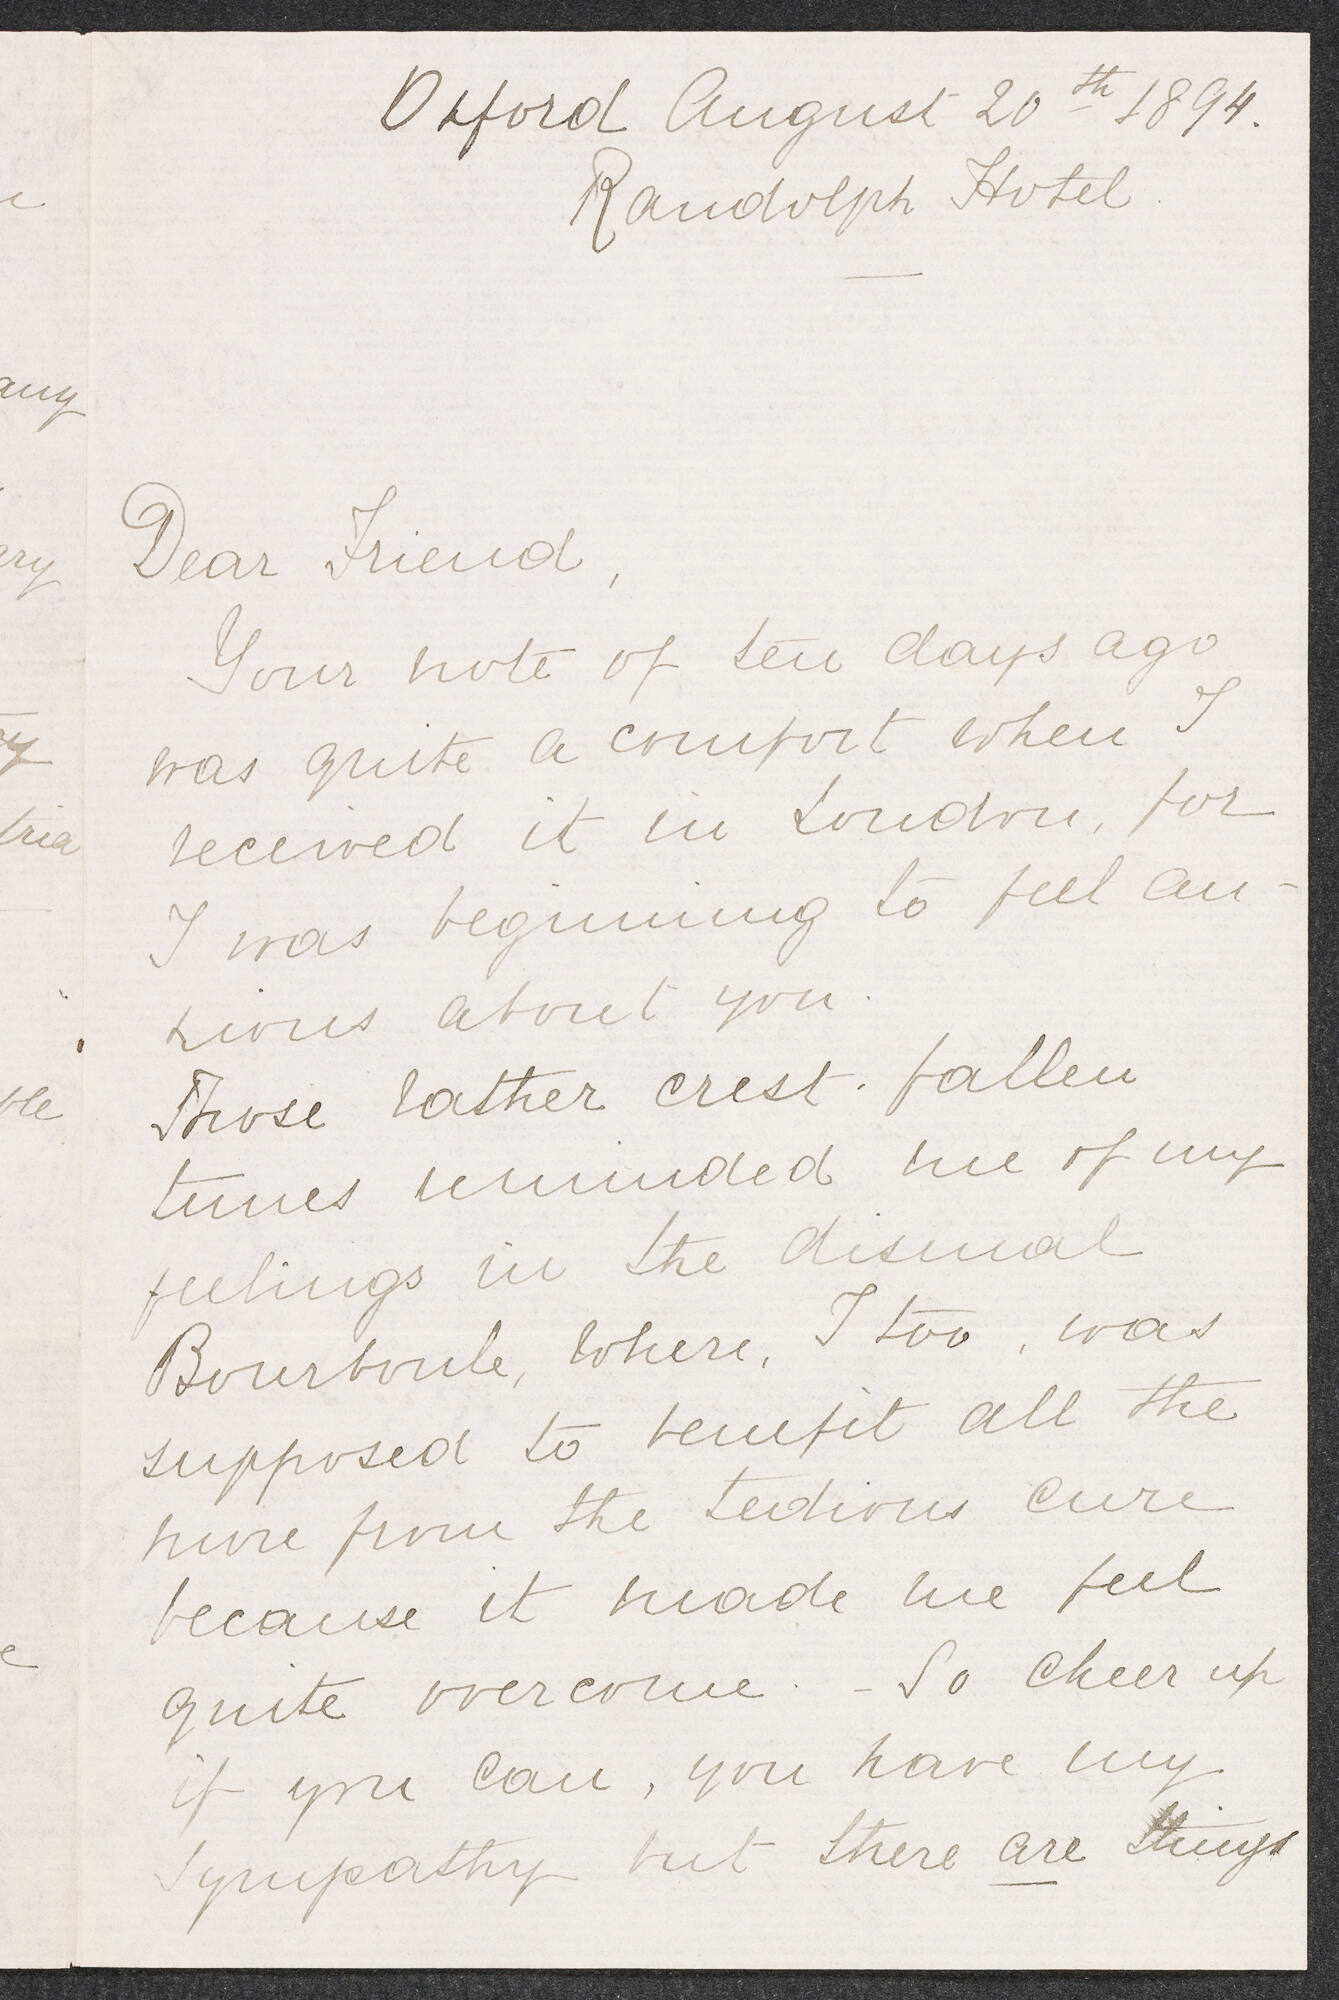 Oxford August 20th 1894.
Randolph Hotel.
Dear Friend,
Your note of ten days ago
was quite a comfort when I
received it in London, for
I was beginning to feel an-
xious about you.
Those rather crest-fallen
tunes reminded me of my
feelings in the dismal
Bourboule, where, I too, was
supposed to benefit all the
more from the tedious cure
because it made me feel
quite overcome. - So cheer up
if you can, you have my
sympathy but there are things